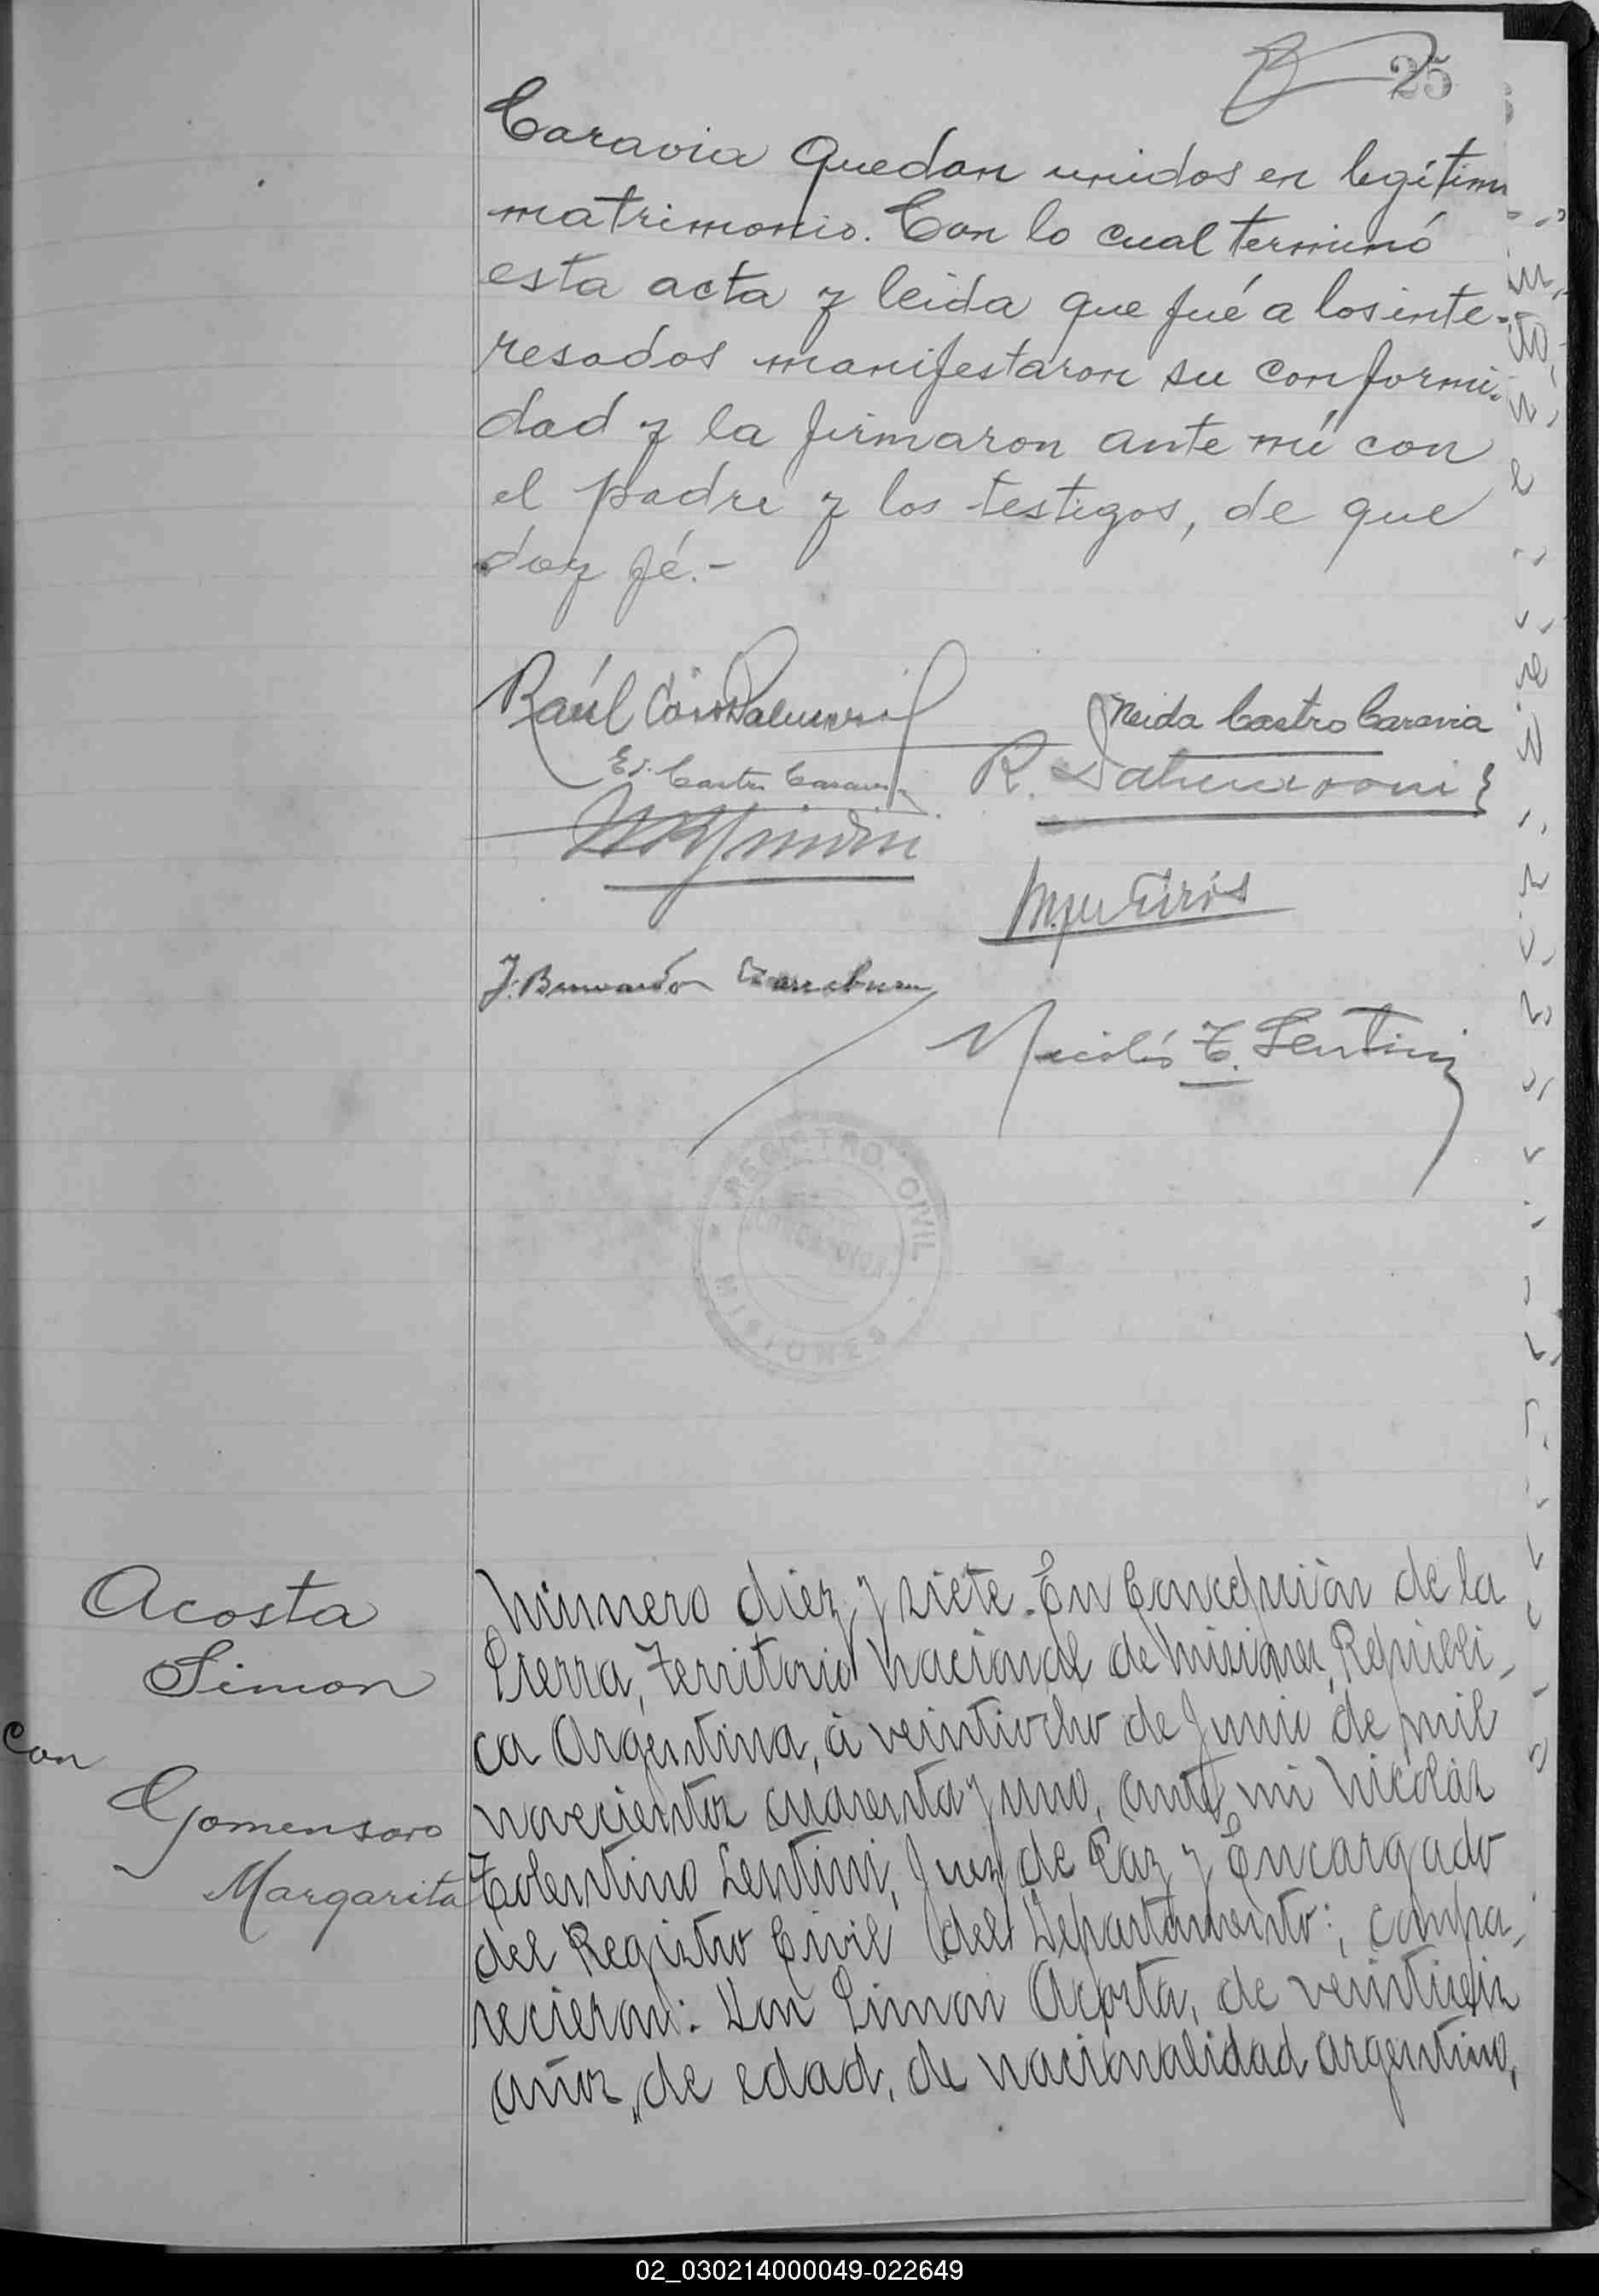 25
Caravia quedan unidos en legítimo
matrimonio. Con lo cual terminó
esta acta y leida que fué a los inte-
resados manifestaron su conformi-
dad y la firmaron ante mí con
el padre y los testigos, de que
doy fé.-
Raúl
Neida Castro Caravia
Ed. Castro Caravia
R.
J. Bernardo
Nicolás T. Lentini
REGISTRO CIVIL
MISIONES
Acosta
Simon
con
Gomensoro
Margarita
Número diez y siete. En Concepción de la
Sierra, Territorio Nacional de Misiones, Repúbli-
ca Argentina, á veintiocho de Junio de mil
novecientos cuarenta y uno, ante mi Nicolás
Tolentino Lentini, Juez de Paz y Encargado
del Registro Civil del Departamento; compa-
recieron: Don Simon Acosta, de veintiseis
años de edad, de nacionalidad argentino,
02_030214000049-022649